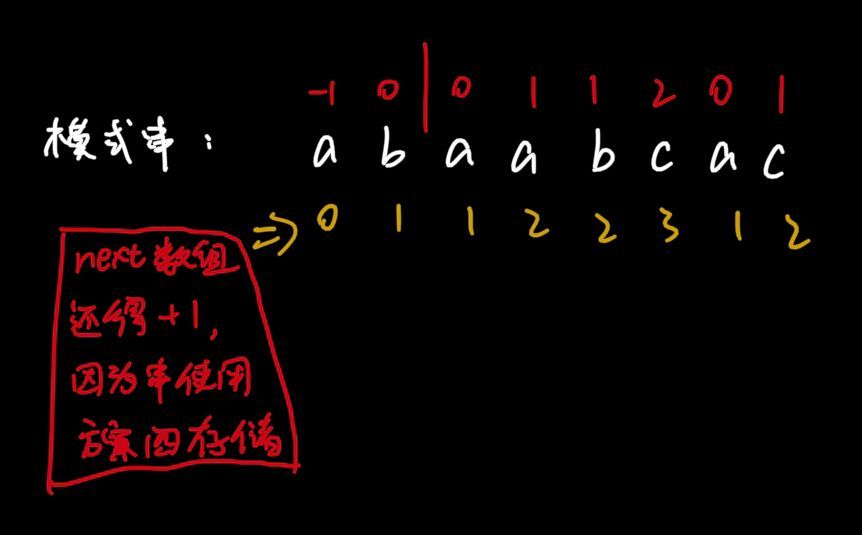 -1 0 0 1 1 2 0 1
模式串: a b a a b c a c
⇒ 0 1 1 2 2 3 1 2
next数组
还得+1,
因为串使用
方案四存储